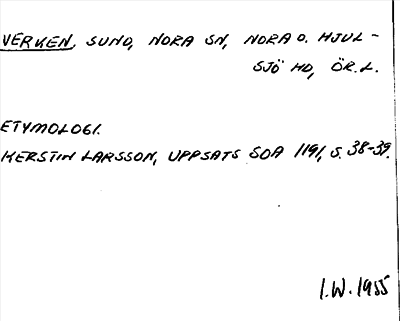 VERKEN, SUND, NORA SN, NORA O. HJUL-
SJÖ HD, ÖR.L.
ETYMOLOGI.
KERSTIN LARSSON, UPPSATS SOA 1191, S. 38-39.
I.W. 1955